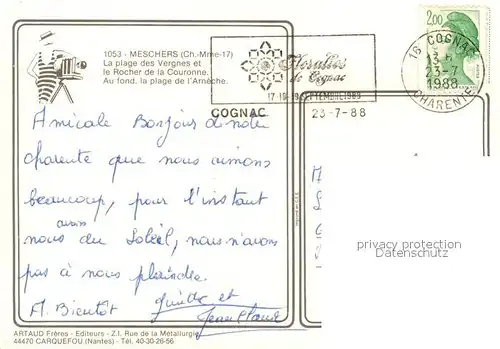 1053 - MESCHERS (Ch.-Mme-17)
La plage des Vergnes et
le Rocher de la Couronne.
Au fond, la plage de l'Arnèche.
Floralies
de Cognac
17-18-19 SEPTEMBRE 1988
COGNAC
23-7-88
2,00
16 COGNAC
23-7
1988
CHARENTE
Amicale Bonjour de notre
charente que nous aimons
beaucoup, pour l'instant
avons
nous du Soleil, nous n'avons
pas à nous plaindre.
A Bientôt
et
Jean Claude
privacy protection
Datenschutz
ARTAUD Frères - Editeurs - Z.I. Rue de la Métallurgie
44470 CARQUEFOU (Nantes) - Tél. 40-30-26-56